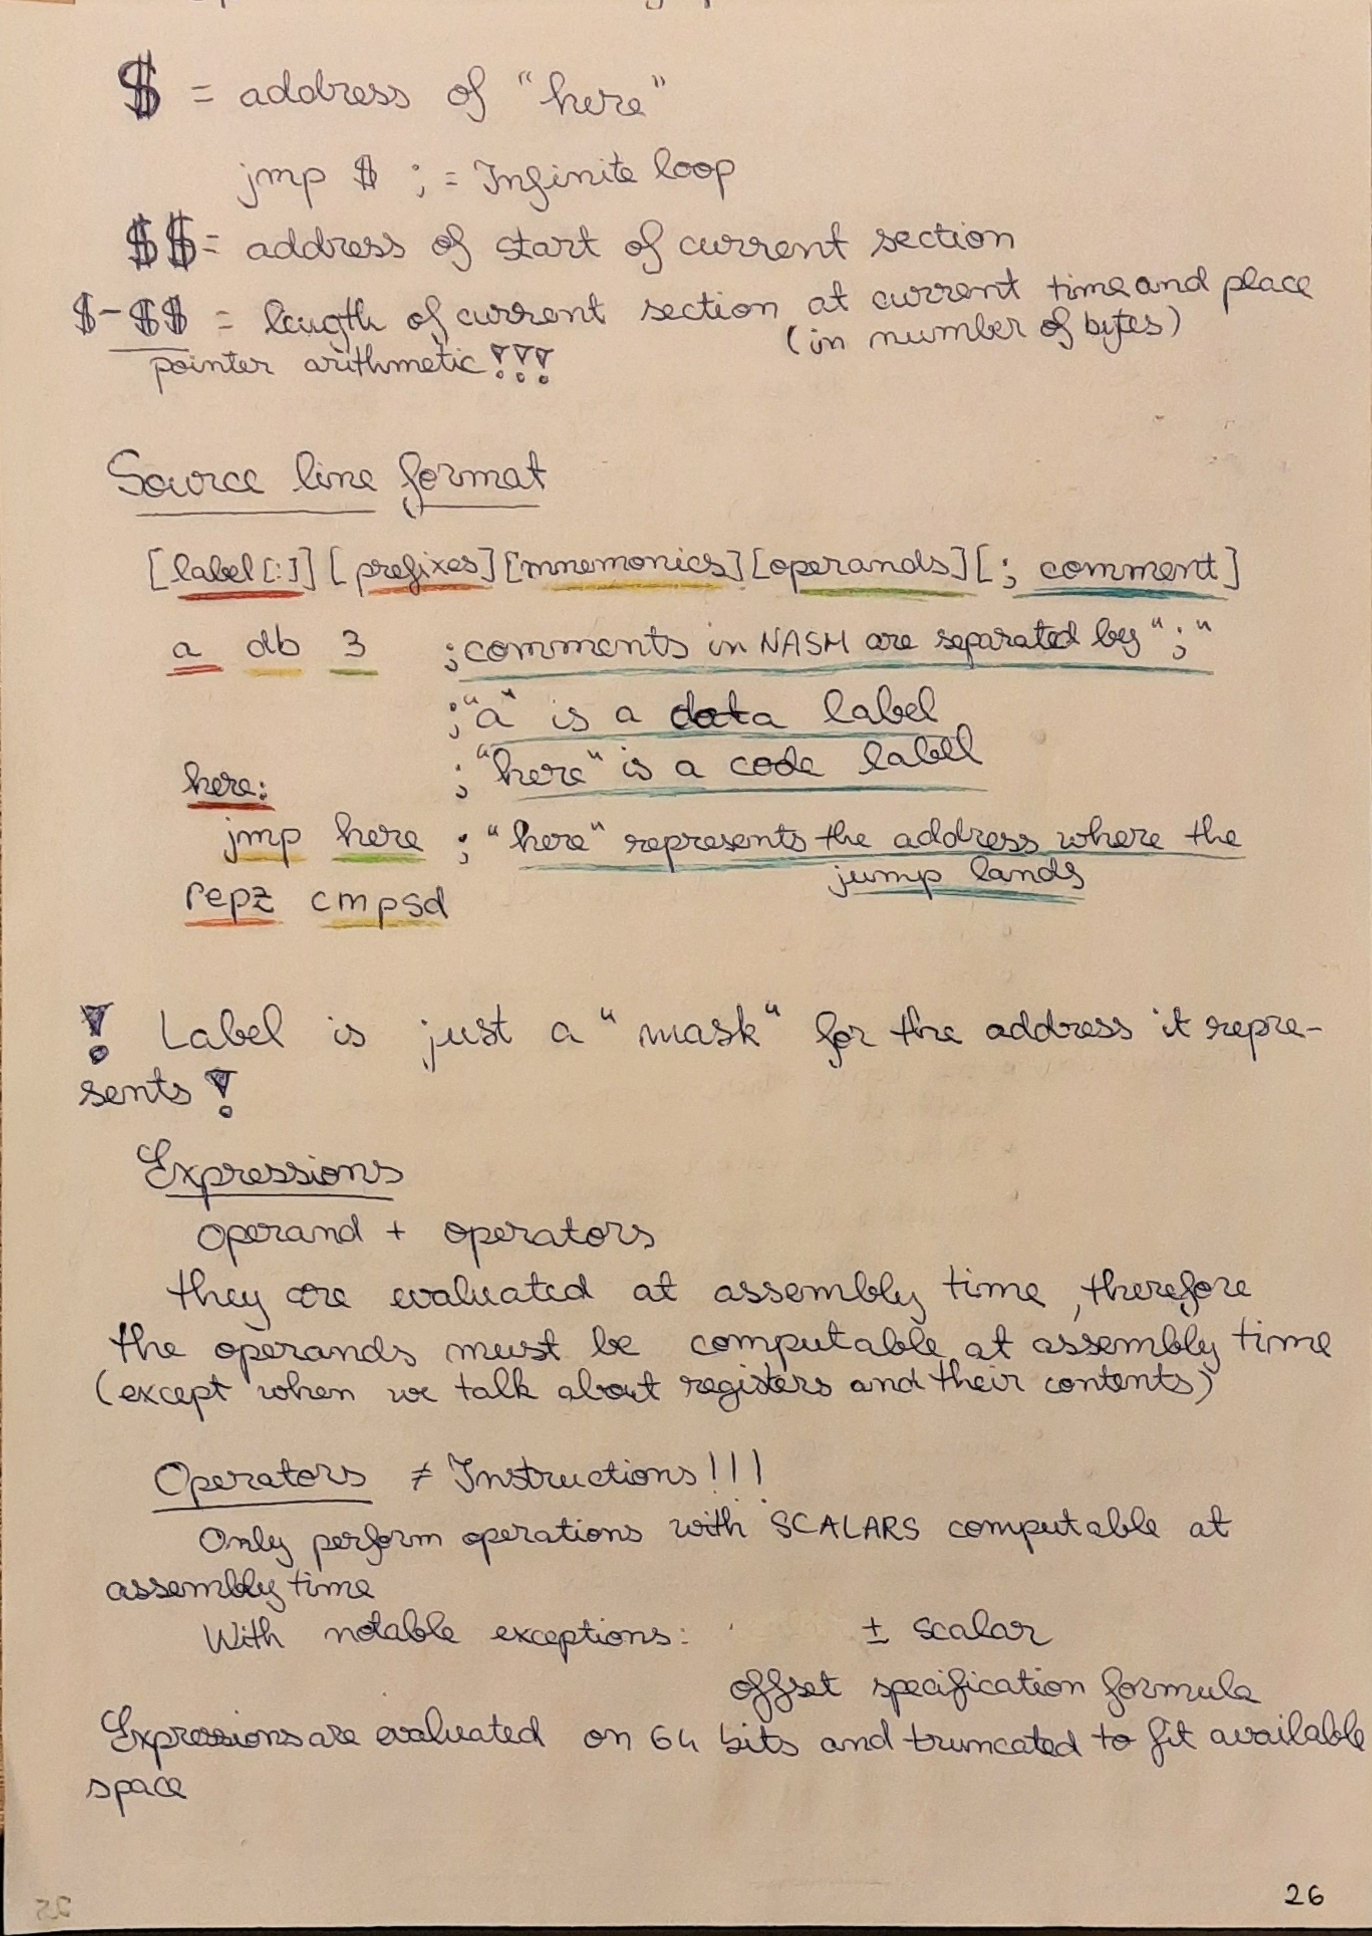 $ = address of "here"
jmp $ ; = Infinite loop
$$ = address of start of current section
$-$$ = length of current section at current time and place
(in number of bytes)
pointer arithmetic!!!
Source line format
[label[:]] [prefixes] [mnemonics] [operands] [; comment]
a db 3 ;comments in NASM are separated by ";"
;"a" is a data label
;"here" is a code label
here:
jmp here ; "here" represents the address where the
jump lands
repz cmpsd
! Label is just a "mask" for the address it repre-
sents!
Expressions
operand + operators
they are evaluated at assembly time, therefore
the operands must be computable at assembly time
(except when we talk about registers and their contents)
Operators ≠ Instructions!!!
Only perform operations with SCALARS computable at
assembly time
With notable exceptions: ± scalar
offset specification formula
Expressions are evaluated on 64 bits and truncated to fit available
space
26